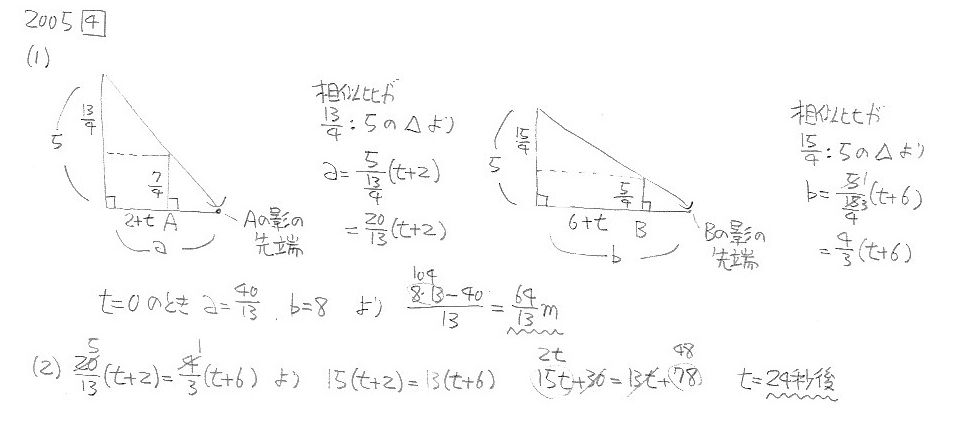 2005 4
(1)
5 13/4 7/4 2+t A a
Aの影の
先端
相似比が
13/4 : 5 の△より
a = 5/(13/4) (t+2)
= 20/13 (t+2)
5 15/4 5/4 6+t B b
Bの影の
先端
相似比が
15/4 : 5 の△より
b = 5/(15/4) (t+6) 1 3
= 4/3 (t+6)
t=0のとき a = 40/13 . b=8 より (8·13-40)/13 = 64/13 m 104
(2) 20/13 (t+2) = 4/3 (t+6) より 15(t+2) = 13(t+6) 15t+30 = 13t+78 t=24秒後 5 1 2t 48